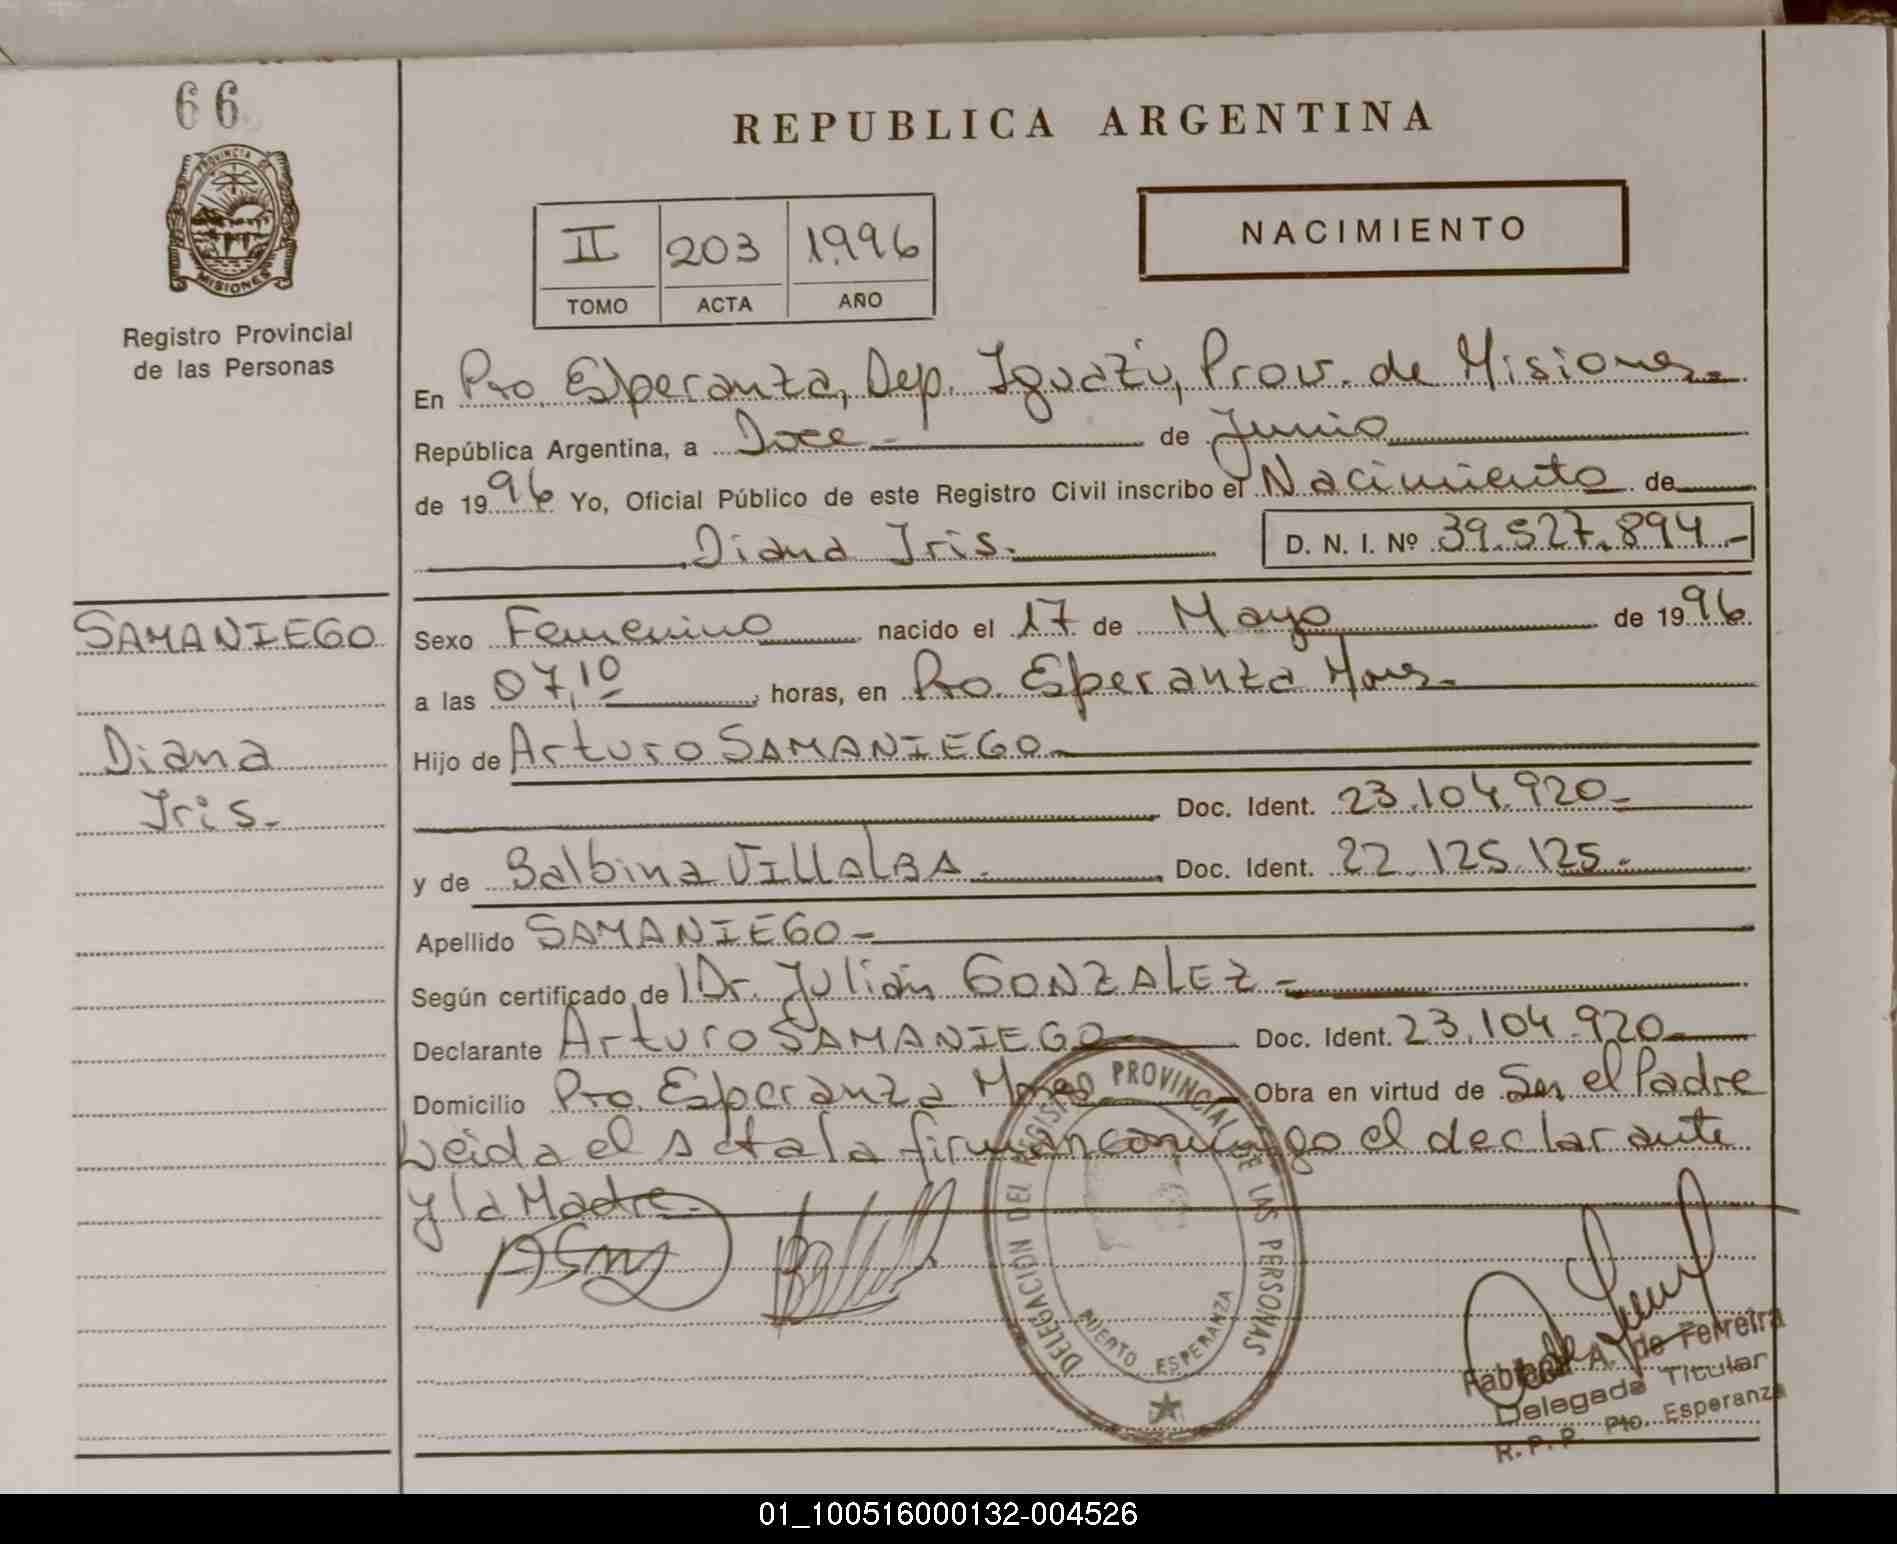 66
REPUBLICA ARGENTINA
PROVINCIA DE
MISIONES
Registro Provincial
de las Personas
II 203 1.996
TOMO ACTA AÑO
NACIMIENTO
En Pto. Esperanza, Dep. Iguazú, Prov. de Misiones.-
República Argentina, a Doce - de Junio
de 1996 Yo, Oficial Público de este Registro Civil inscribo el Nacimiento de
Diana Iris.- D. N. I. Nº 39.527.894.-
SAMANIEGO
Diana
Iris.-
Sexo Femenino nacido el 17 de Mayo de 1996
a las 07,10 horas, en Pto. Esperanza Mnes.-
Hijo de Arturo SAMANIEGO.-
Doc. Ident. 23.104.920.-
y de Balbina VILLALBA.- Doc. Ident. 22.125.125.-
Apellido SAMANIEGO.-
Según certificado de Dr. Julián GONZALEZ.-
Declarante Arturo SAMANIEGO Doc. Ident. 23.104.920.-
Domicilio Pto. Esperanza Mnes Obra en virtud de Ser el Padre
Leida el acta la firman conmigo el declarante
y la Madre.-
DELEGACION DEL REGISTRO PROVINCIAL DE LAS PERSONAS
PUERTO ESPERANZA
A. de Ferreira
Delegada Titular
R. P. P. Pto. Esperanza
01_100516000132-004526